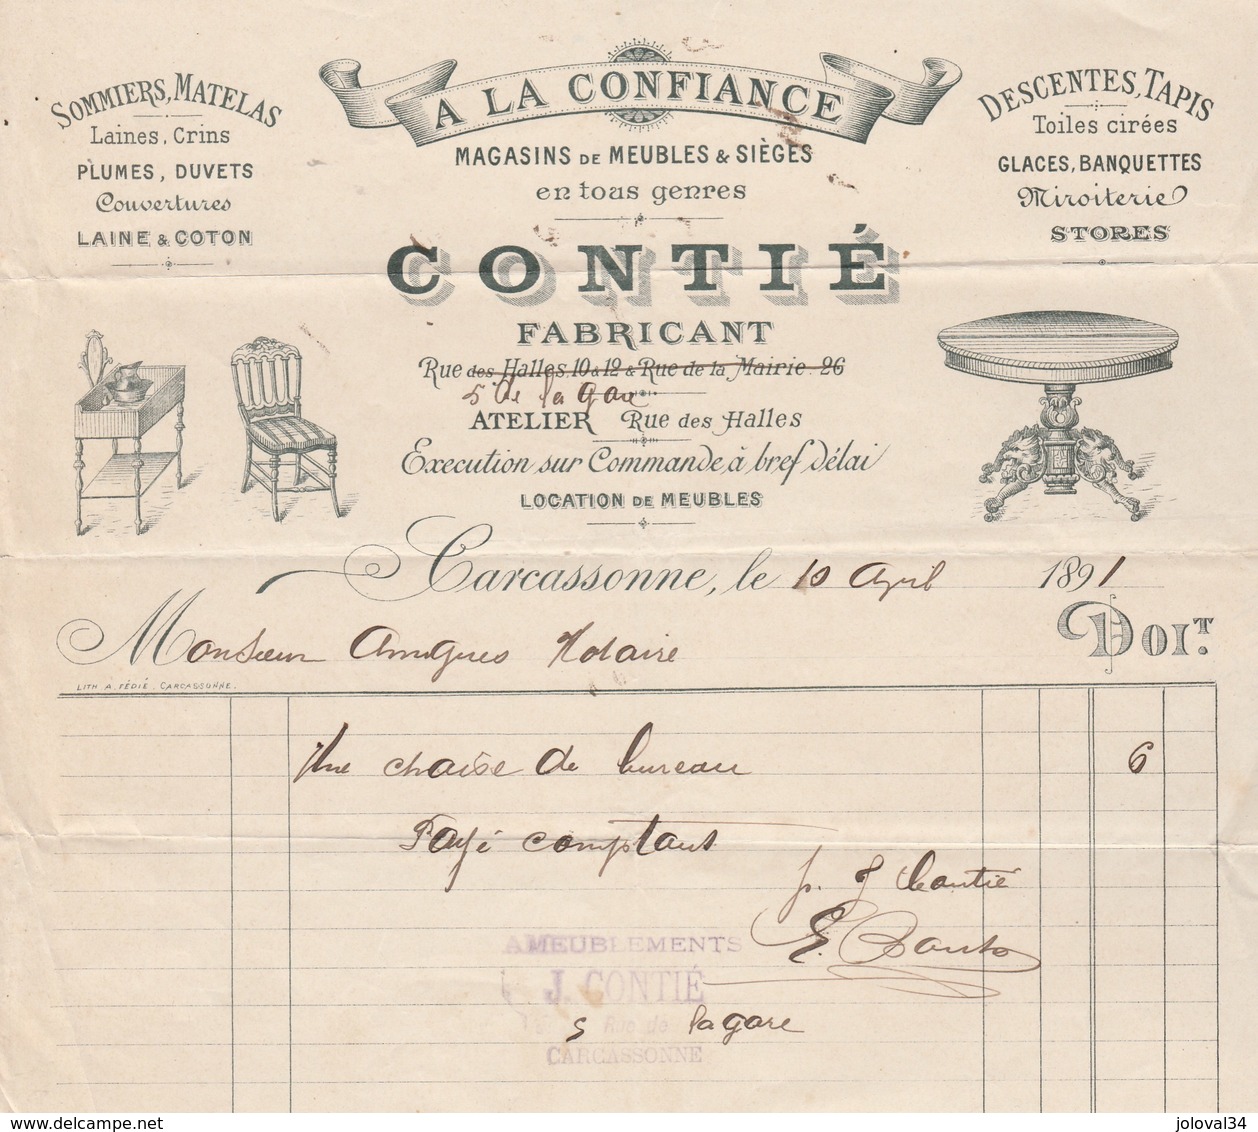 A LA CONFIANCE
MAGASINS DE MEUBLES & SIÈGES
en tous genres
SOMMIERS, MATELAS
Laines, Crins
PLUMES, DUVETS
Couvertures
LAINE & COTON
DESCENTES, TAPIS
Toiles cirées
GLACES, BANQUETTES
Miroiterie
STORES
CONTIÉ
FABRICANT
Rue des Halles 10 & 12 & Rue de la Mairie 26
5 de la gare
ATELIER Rue des Halles
Execution sur Commande à bref Délai
LOCATION DE MEUBLES
Carcassonne, le 10 April 1891
Monsieur Amigues Notaire
DOIT.
LITH A. FÉDIÉ. CARCASSONNE.
Une chaise de bureau 6
Payé comptant
p. J Contié
E.
AMEUBLEMENTS
J. CONTIÉ
5 Rue de la gare
CARCASSONNE
www.delcampe.net
joloval34